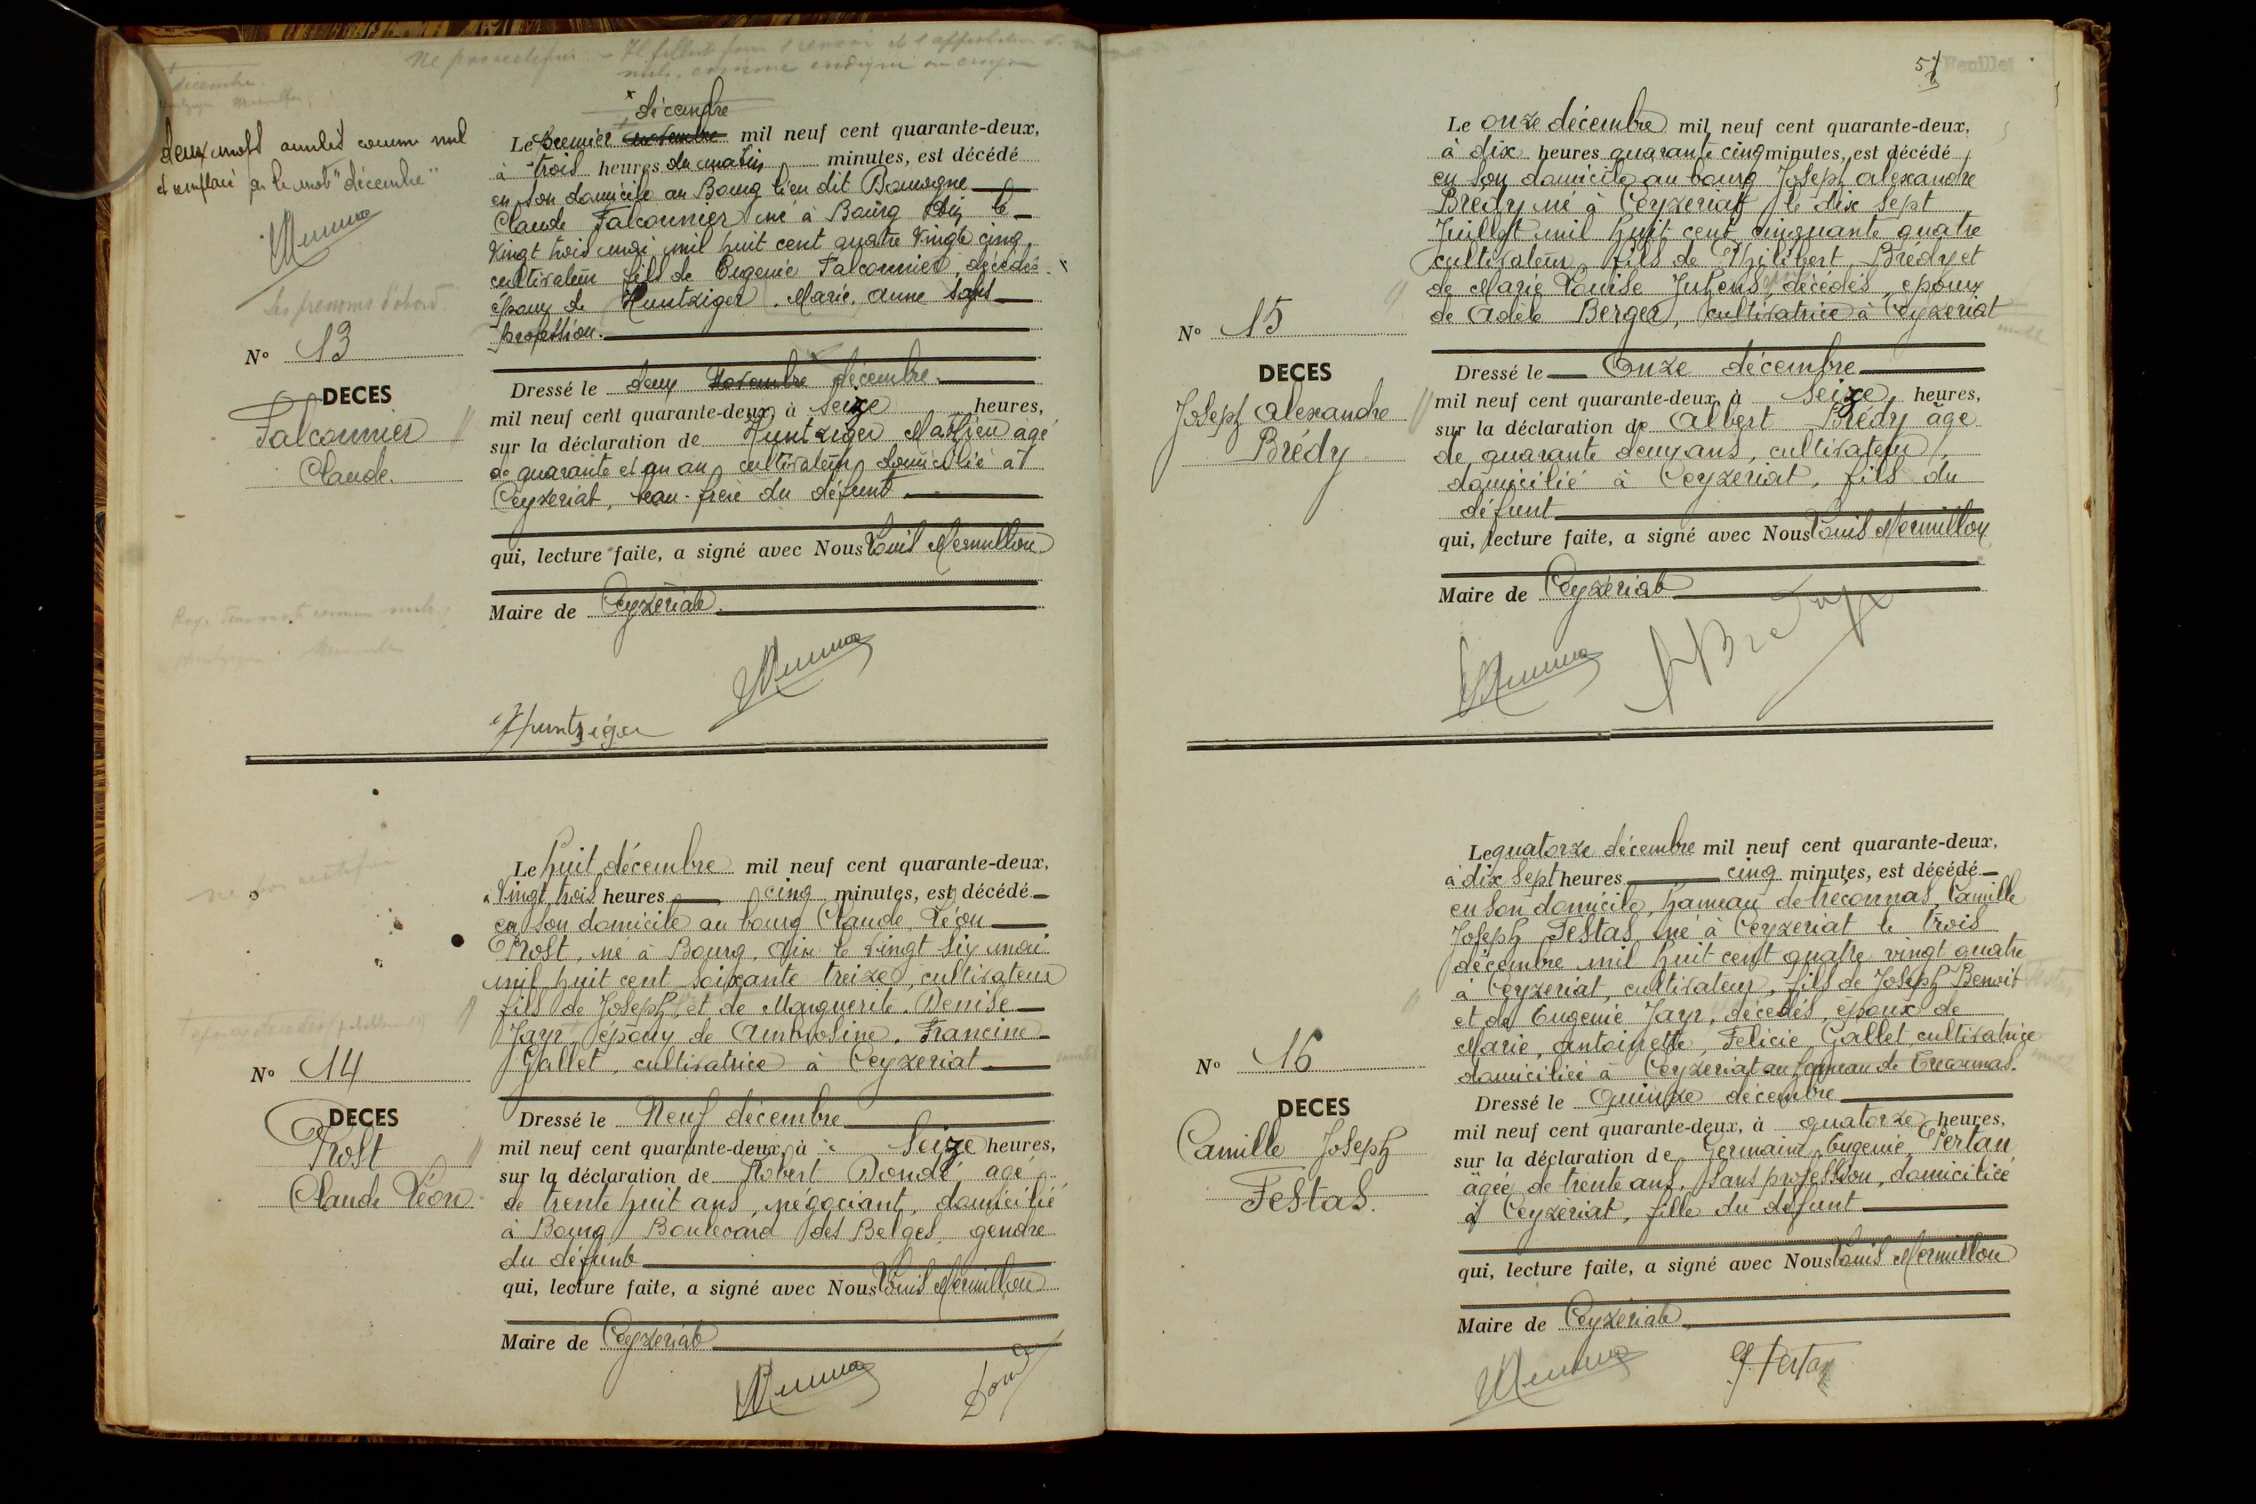 Ne pas rectifier
décembre
deux mots annulés comme nul
et remplacé par le mot "décembre"
Les prénoms d'abord
N° 13
DECES
Falconnier
Claude.
décembre
Le Premier novembre mil neuf cent quarante-deux,
à trois heures du matin minutes, est décédé
en son domicile au Bourg lieu dit
Claude Falconnier né à Bourg le
Vingt trois mai mil huit cent quatre Vingt cinq
cultivateur fils de Eugenie Falconnier, décédée
époux de Huntziger Marie, Anne sans
profession.
Dressé le deux Novembre décembre.
mil neuf cent quarante-deux, à Seize heures,
sur la déclaration de Huntziger Mathieu agé
de quarante et un an, cultivateur, domicilié à
Ceyzeriat, beau-frère du défunt
qui, lecture faite, a signé avec Nous Louis Mermillon
Maire de Ceyzériat.
Huntziger
ne pas rectifier
N° 14
DECES
Prost
Claude Léon.
Le huit décembre mil neuf cent quarante-deux,
à Vingt trois heures cinq minutes, est décédé
en son domicile au bourg Claude Léon
Prost, né à Bourg, Ain le vingt six mai
mil huit cent soixante treize, cultivateur
fils de Joseph et de Marguerite. Denise
Jayr, époux de Ambroisine. Francine
Gallet, cultivatrice à Ceyzeriat.
Dressé le Neuf décembre
mil neuf cent quarante-deux, à Seize heures,
sur la déclaration de Robert Dondé agé
de trente huit ans, négociant, domicilié
à Bourg Boulevard des Belges, gendre
du défunt
qui, lecture faite, a signé avec Nous Louis Mermillon
Maire de Ceyzériat
Feuillet
N° 15
DECES
Joseph Alexandre
Brédy
Le onze décembre mil neuf cent quarante-deux,
à dix heures quarante cinq minutes, est décédé
en son domicile au bourg Joseph Alexandre
Brédy né à Ceyzeriat le dix sept
Juillet mil huit cent cinquante quatre
cultivateur, fils de Philibert, Brédy et
de Marie Louise décédés, époux
de Adèle Berger, cultivatrice à Ceyzeriat
Dressé le Onze décembre
mil neuf cent quarante-deux, à Seize heures,
sur la déclaration de Albert Brédy agé
de quarante deux ans, cultivateur,
domicilié à Ceyzeriat, fils du
défunt
qui, lecture faite, a signé avec Nous Louis Mermillon
Maire de Ceyzériat
N° 16
DECES
Camille Joseph
Festas.
Le quatorze décembre mil neuf cent quarante-deux,
à dix sept heures cinq minutes, est décédé
en son domicile, hameau de Treconnas, Camille
Joseph Festas né à Ceyzeriat le trois
décembre mil huit cent quatre vingt quatre
à Ceyzeriat, cultivateur, fils de Joseph Benoit
et de Eugenie Jayr, décédés, époux de
Marie, Antoinette, Felicie Gallet, cultivatrice
domiciliée à Ceyzeriat au hameau de Treconnas.
Dressé le Quinze décembre
mil neuf cent quarante-deux, à quatorze heures,
sur la déclaration de Germaine Eugenie Pertan
âgée de trente ans, sans profession, domiciliée
à Ceyzeriat, fille du défunt
qui, lecture faite, a signé avec Nous Louis Mermillon
Maire de Ceyzériat